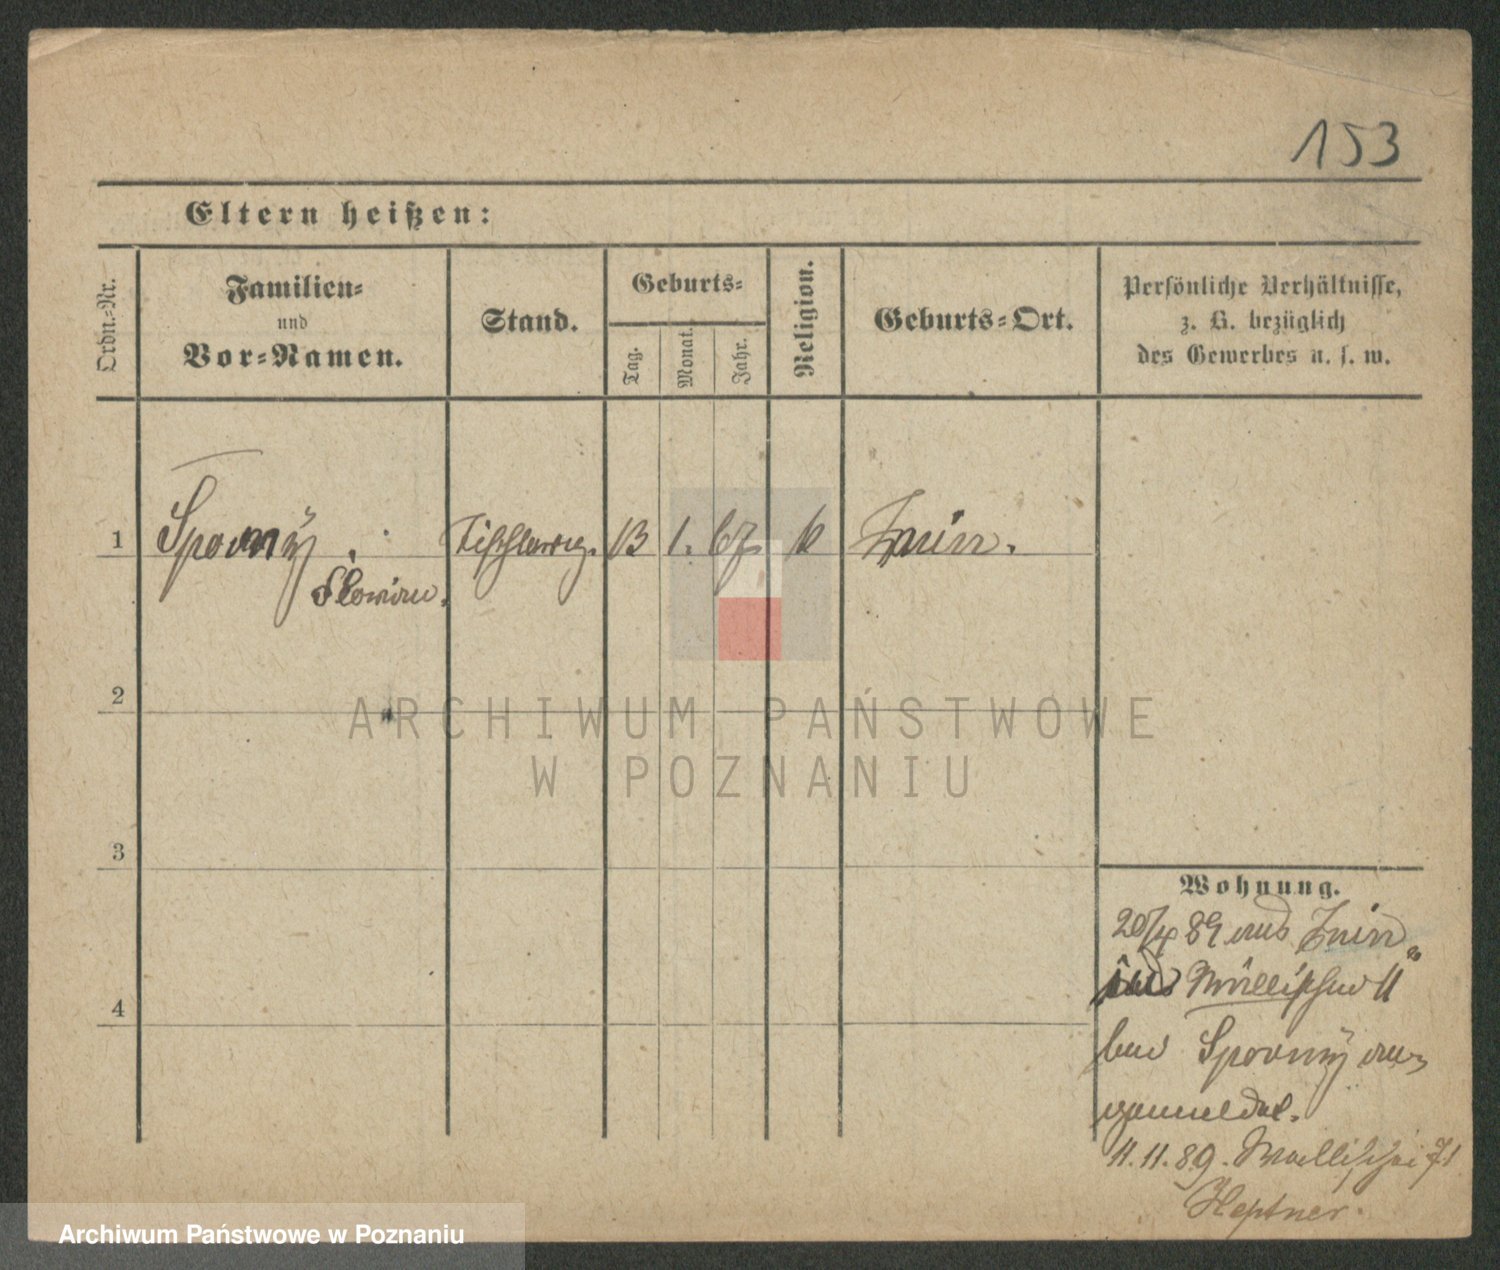 153
Eltern heißen:
Ordn.-Nr.
Familien-
und
Vor-Namen.
Stand.
Geburts-
Tag.
Monat.
Jahr.
Religion.
Geburts-Ort.
Persönliche Verhältnisse,
z. B. bezüglich
des Gewerbes u. s. w.
1 Sporny
Florian. 13 1. 67. k Znin.
2
ARCHIWUM PAŃSTWOWE
W POZNANIU
3
4
Wohnung.
89 aus Znin
Wallischei 11
bei Sporny an-
gemeldet.
11.11.89. Wallischei 71
Heptner.
Archiwum Państwowe w Poznaniu